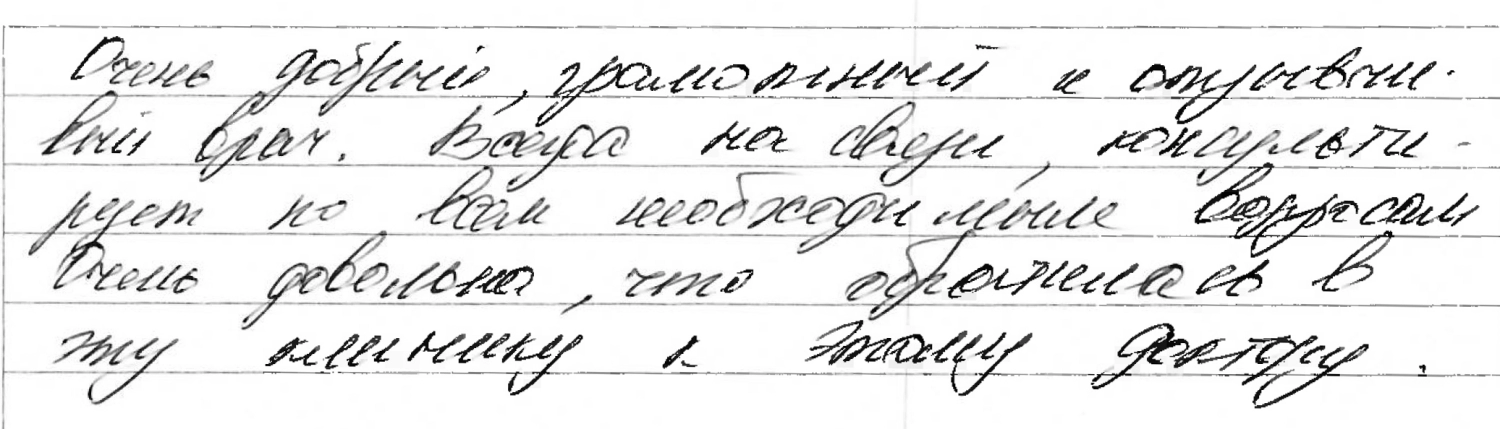 Очень добрый, грамотный и отзывчи-
вый врач. Всегда на связи, консульти-
рует по всем необходимым вопросам
Очень довольна, что обратилась в
эту клинику к этому доктору.